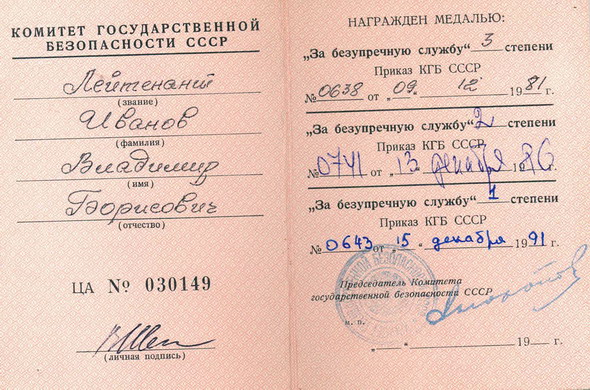 КОМИТЕТ ГОСУДАРСТВЕННОЙ
БЕЗОПАСНОСТИ СССР
Лейтенант
(звание)
Иванов
(фамилия)
Владимир
(имя)
Борисович
(отчество)
ЦА № 030149
(личная подпись)
НАГРАЖДЕН МЕДАЛЬЮ:
„За безупречную службу“ 3 степени
Приказ КГБ СССР
№ 0638 от „09“ 12 1981 г.
„За безупречную службу“ 2 степени
Приказ КГБ СССР
№ 0741 от „13“ декабря 1986 г.
„За безупречную службу“ 1 степени
Приказ КГБ СССР
№ 0643 от „15“ декабря 1991 г.
Председатель Комитета
государственной безопасности СССР
м. п.
„ “ 19 г.